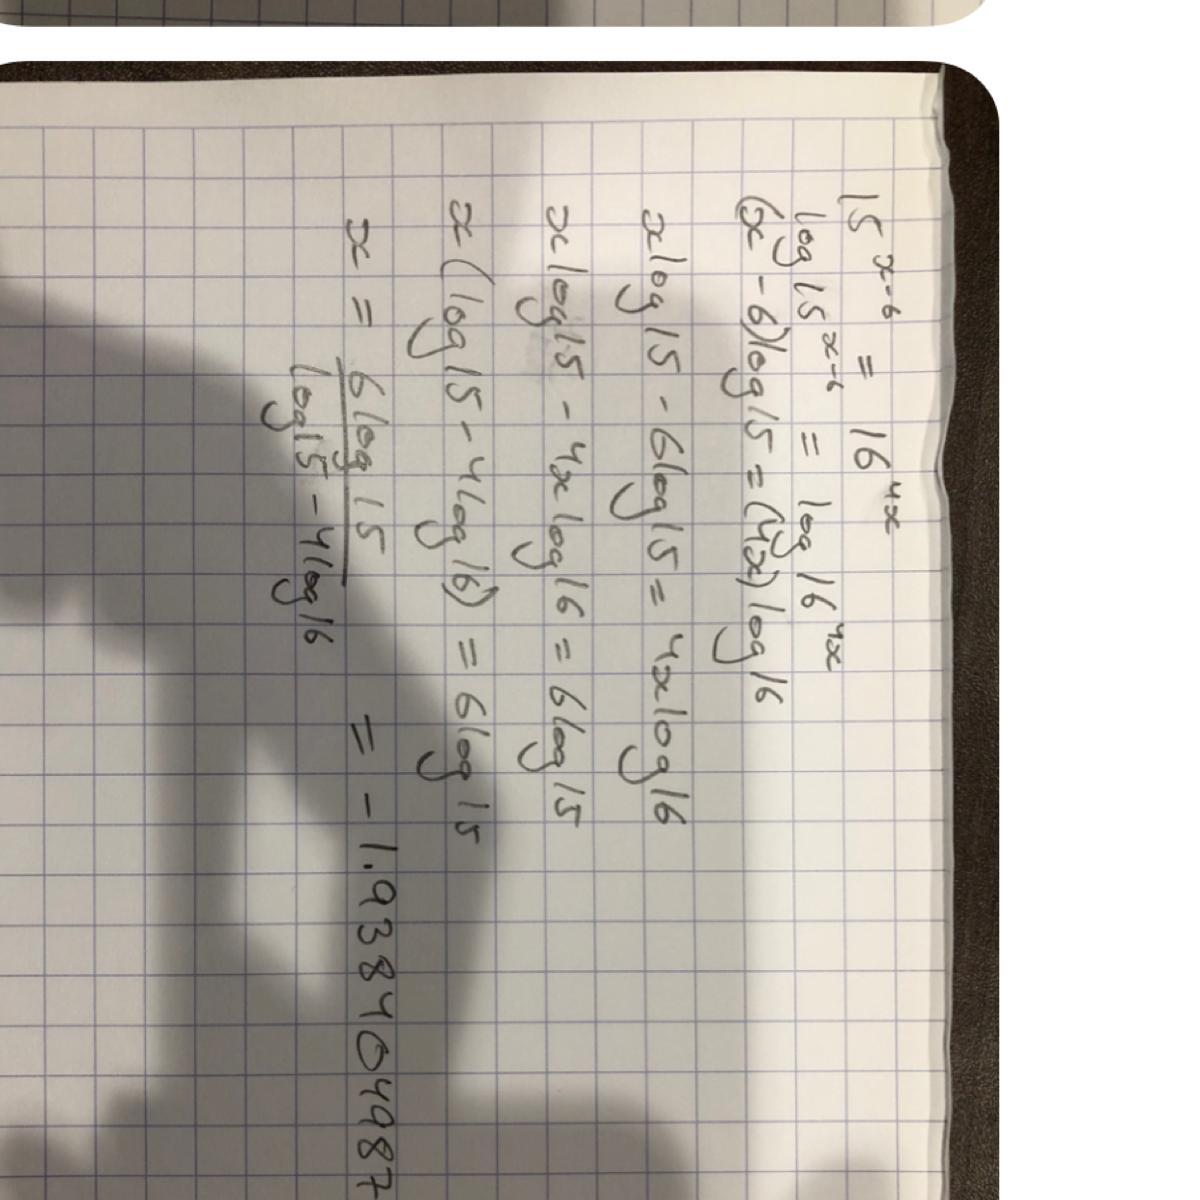 15^{x-6} = 16^{4x}
log 15^{x-6} = log 16^{4x}
(x - 6)log 15 = (4x) log 16
x log 15 - 6 log 15 = 4x log 16
x log 15 - 4x log 16 = 6 log 15
x (log 15 - 4 log 16) = 6 log 15
x = \frac{6 log 15}{log 15 - 4 log 16} = - 1.938404987